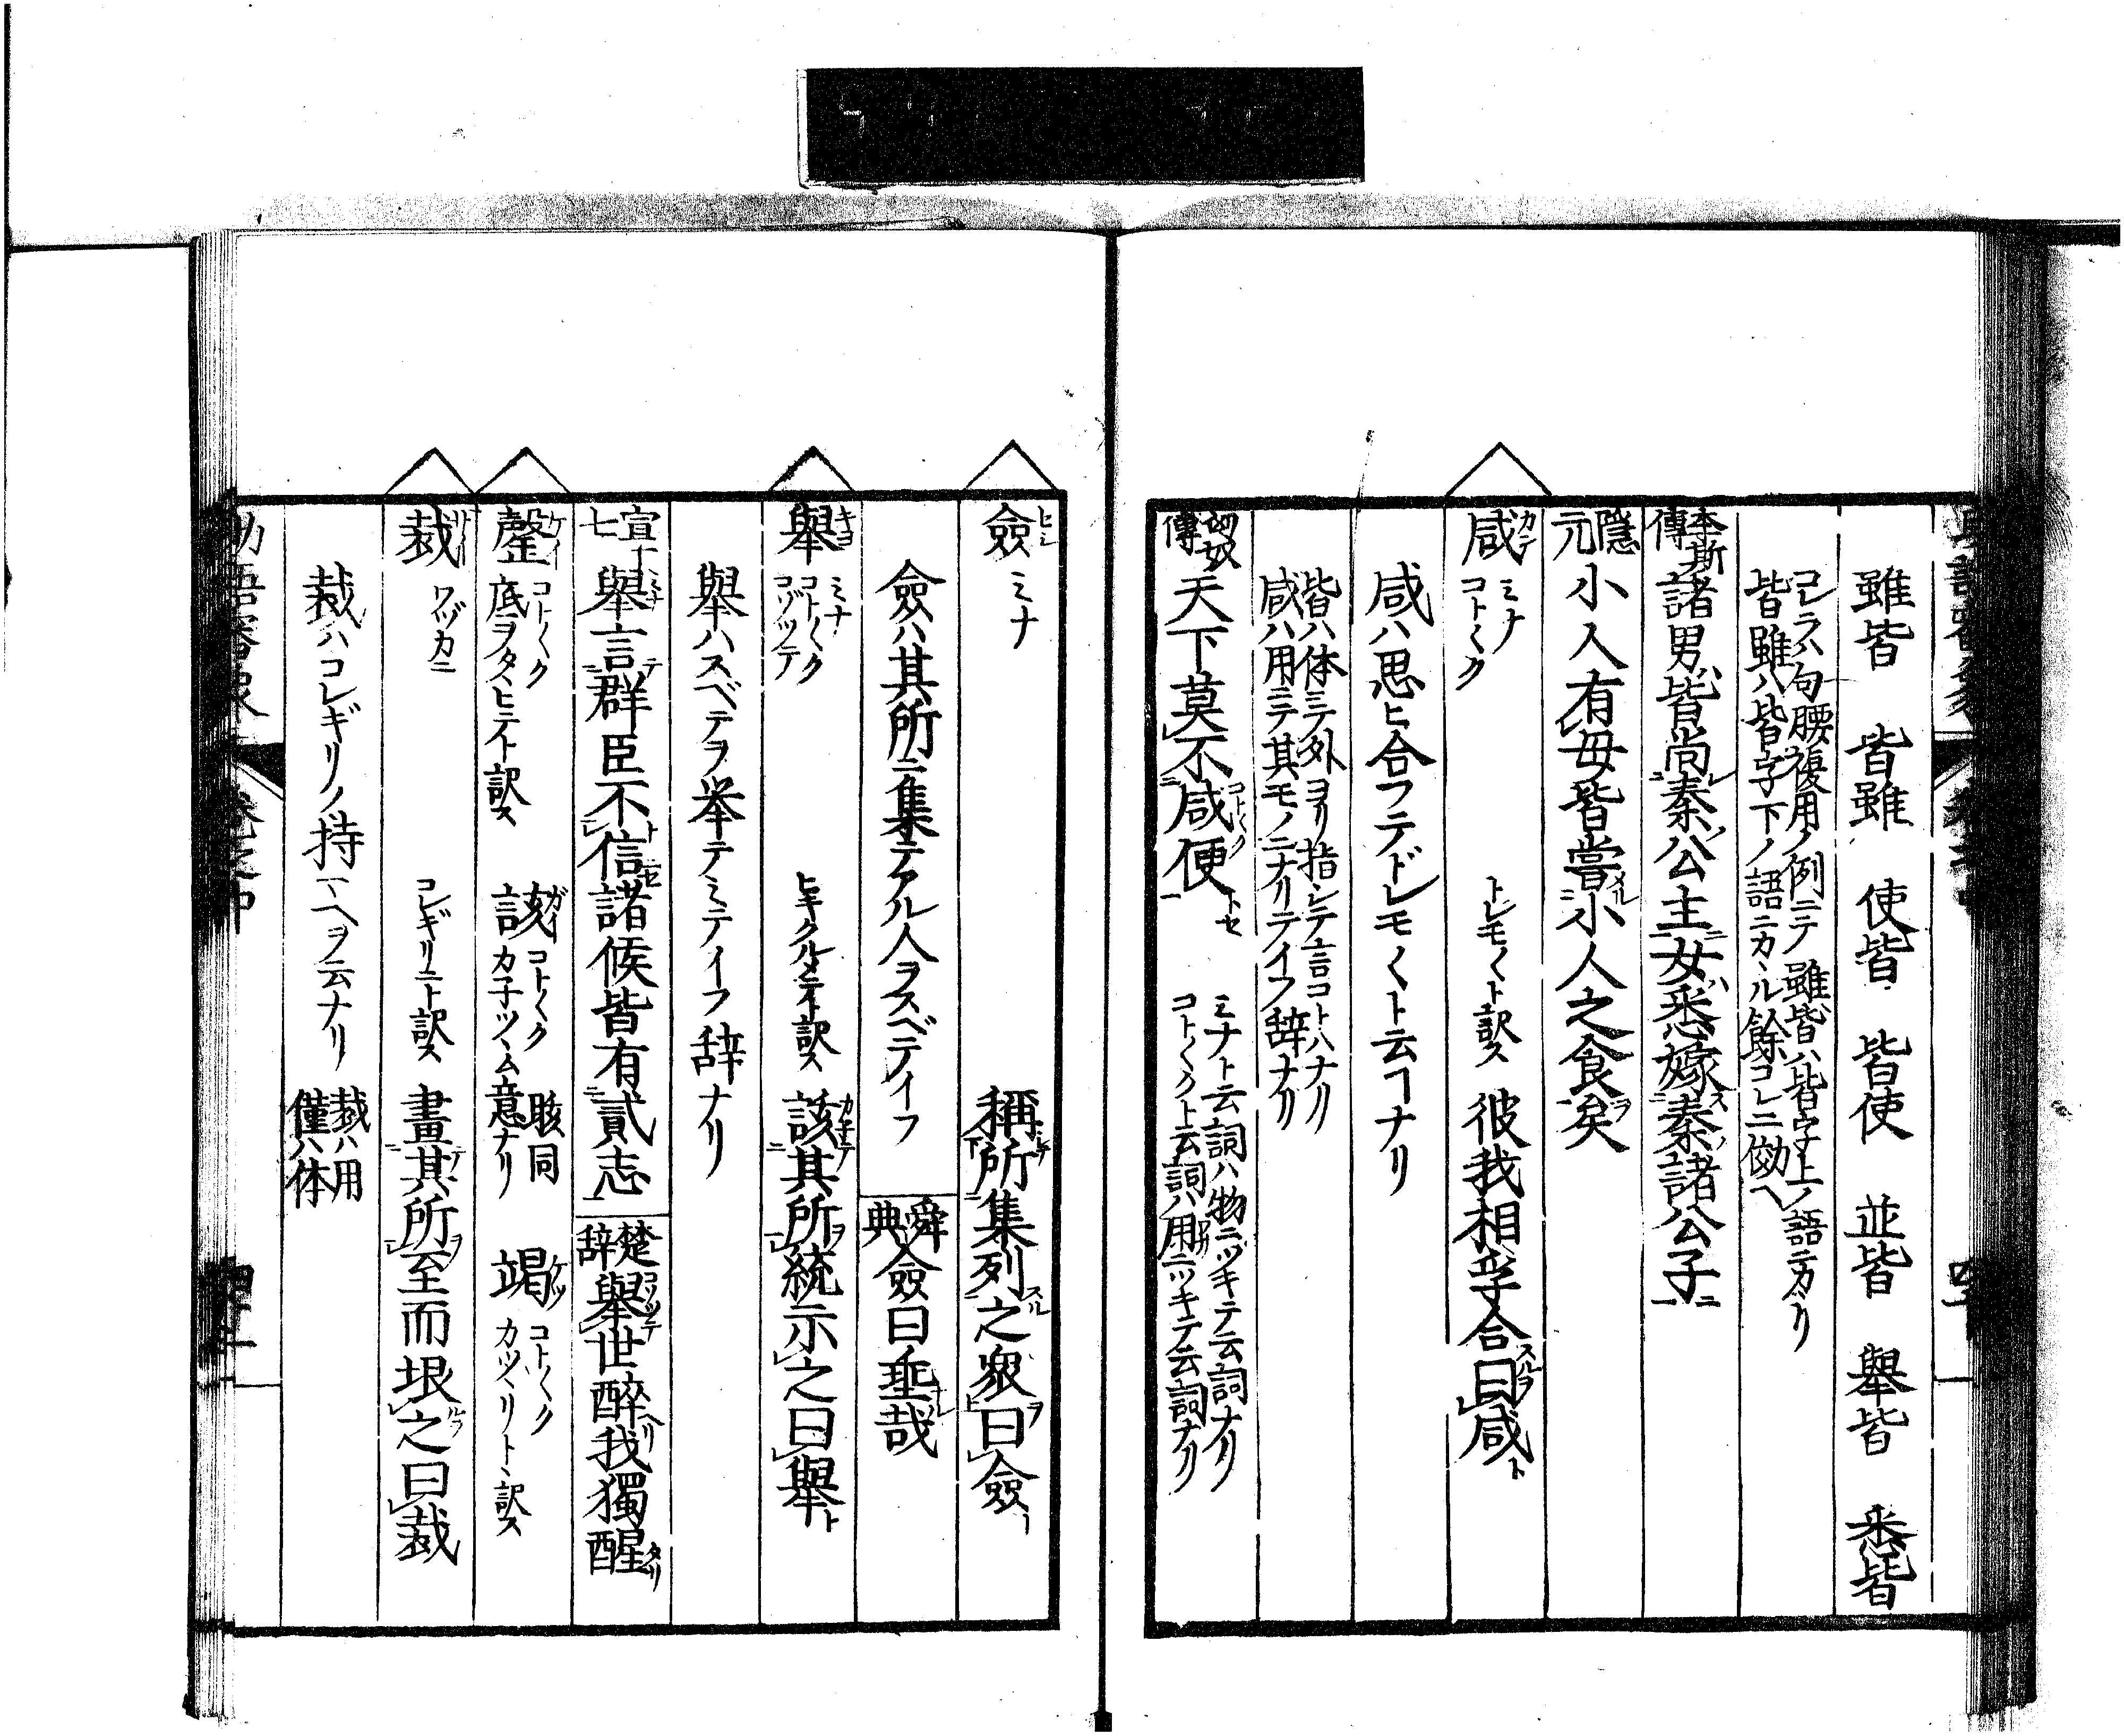 雖皆 皆雖 使皆 皆使 並皆 舉皆 悉皆
コレラハ句腰複用ノ例ニテ雖皆ハ皆字上ノ語ニカヽリ
皆雖ハ皆字下ノ語ニカヽル餘コレニ傚ヘ
李斯傳 諸男皆尚秦公主女悉嫁秦諸公子
隱元 小人有母皆嘗小人之食矣
咸 カン ミナ コト〱ク トレモ〱ト訳ス 彼我相孚合スルヲ曰咸ト
咸ハ思ヒ合フテドレモ〱ト云フナリ
皆ハ体ニテ外ヨリ指シテ言コトハナリ
咸ハ用ニテ其モノニナリテイフ辞ナリ
匈奴傳 天下莫不咸便
ミナト云詞ハ物ニツキテ云詞ナリ
コト〱クト云詞ハ用ニツキテ云詞ナリ
僉 ミナ 稱所集列スル之衆ヲ曰僉ト
僉ハ其所ニ集テアル人ヲスベテイフ
舜典 僉曰垂哉
舉 キヨ ミナ コト〱ク コゾツテ ヒキクルメテト訳ス 該其所ヲ統示之曰舉ト
舉ハスベテヲ挙テミテイフ辞ナリ
宣十七 舉言群臣不信諸侯皆有貳志
楚辞 舉世醉我獨醒
罄 ケイ コト〱ク 底ヲタヽヒテト訳ス
該 ガイ コト〱ク カ子ツヽム意ナリ 賅同
竭 ケツ コト〱ク カツヽリトヽ訳ス
裁 サイ ワヅカニ コレギリニト訳ス 畫其所ヲ至而垠之曰裁
裁ハコレギリノ持マヘヲ云ナリ
裁ハ用
僅ハ体